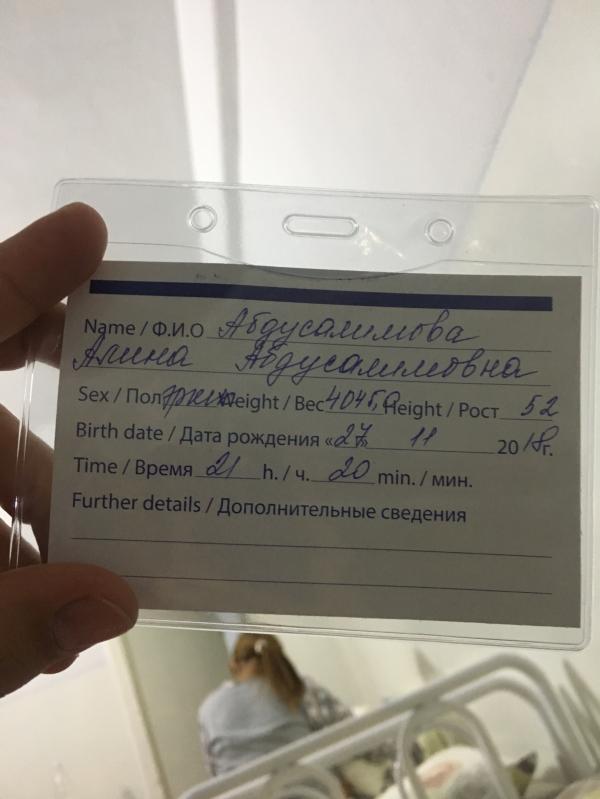 Name / Ф.И.О Абдусалимова
Алина Абдусалимовна
Sex / Пол жен Weight / Вес 4045,0 Height / Рост 52
Birth date / Дата рождения «27» 11 2018г.
Time / Время 21 h. / ч. 20 min. / мин.
Further details / Дополнительные сведения